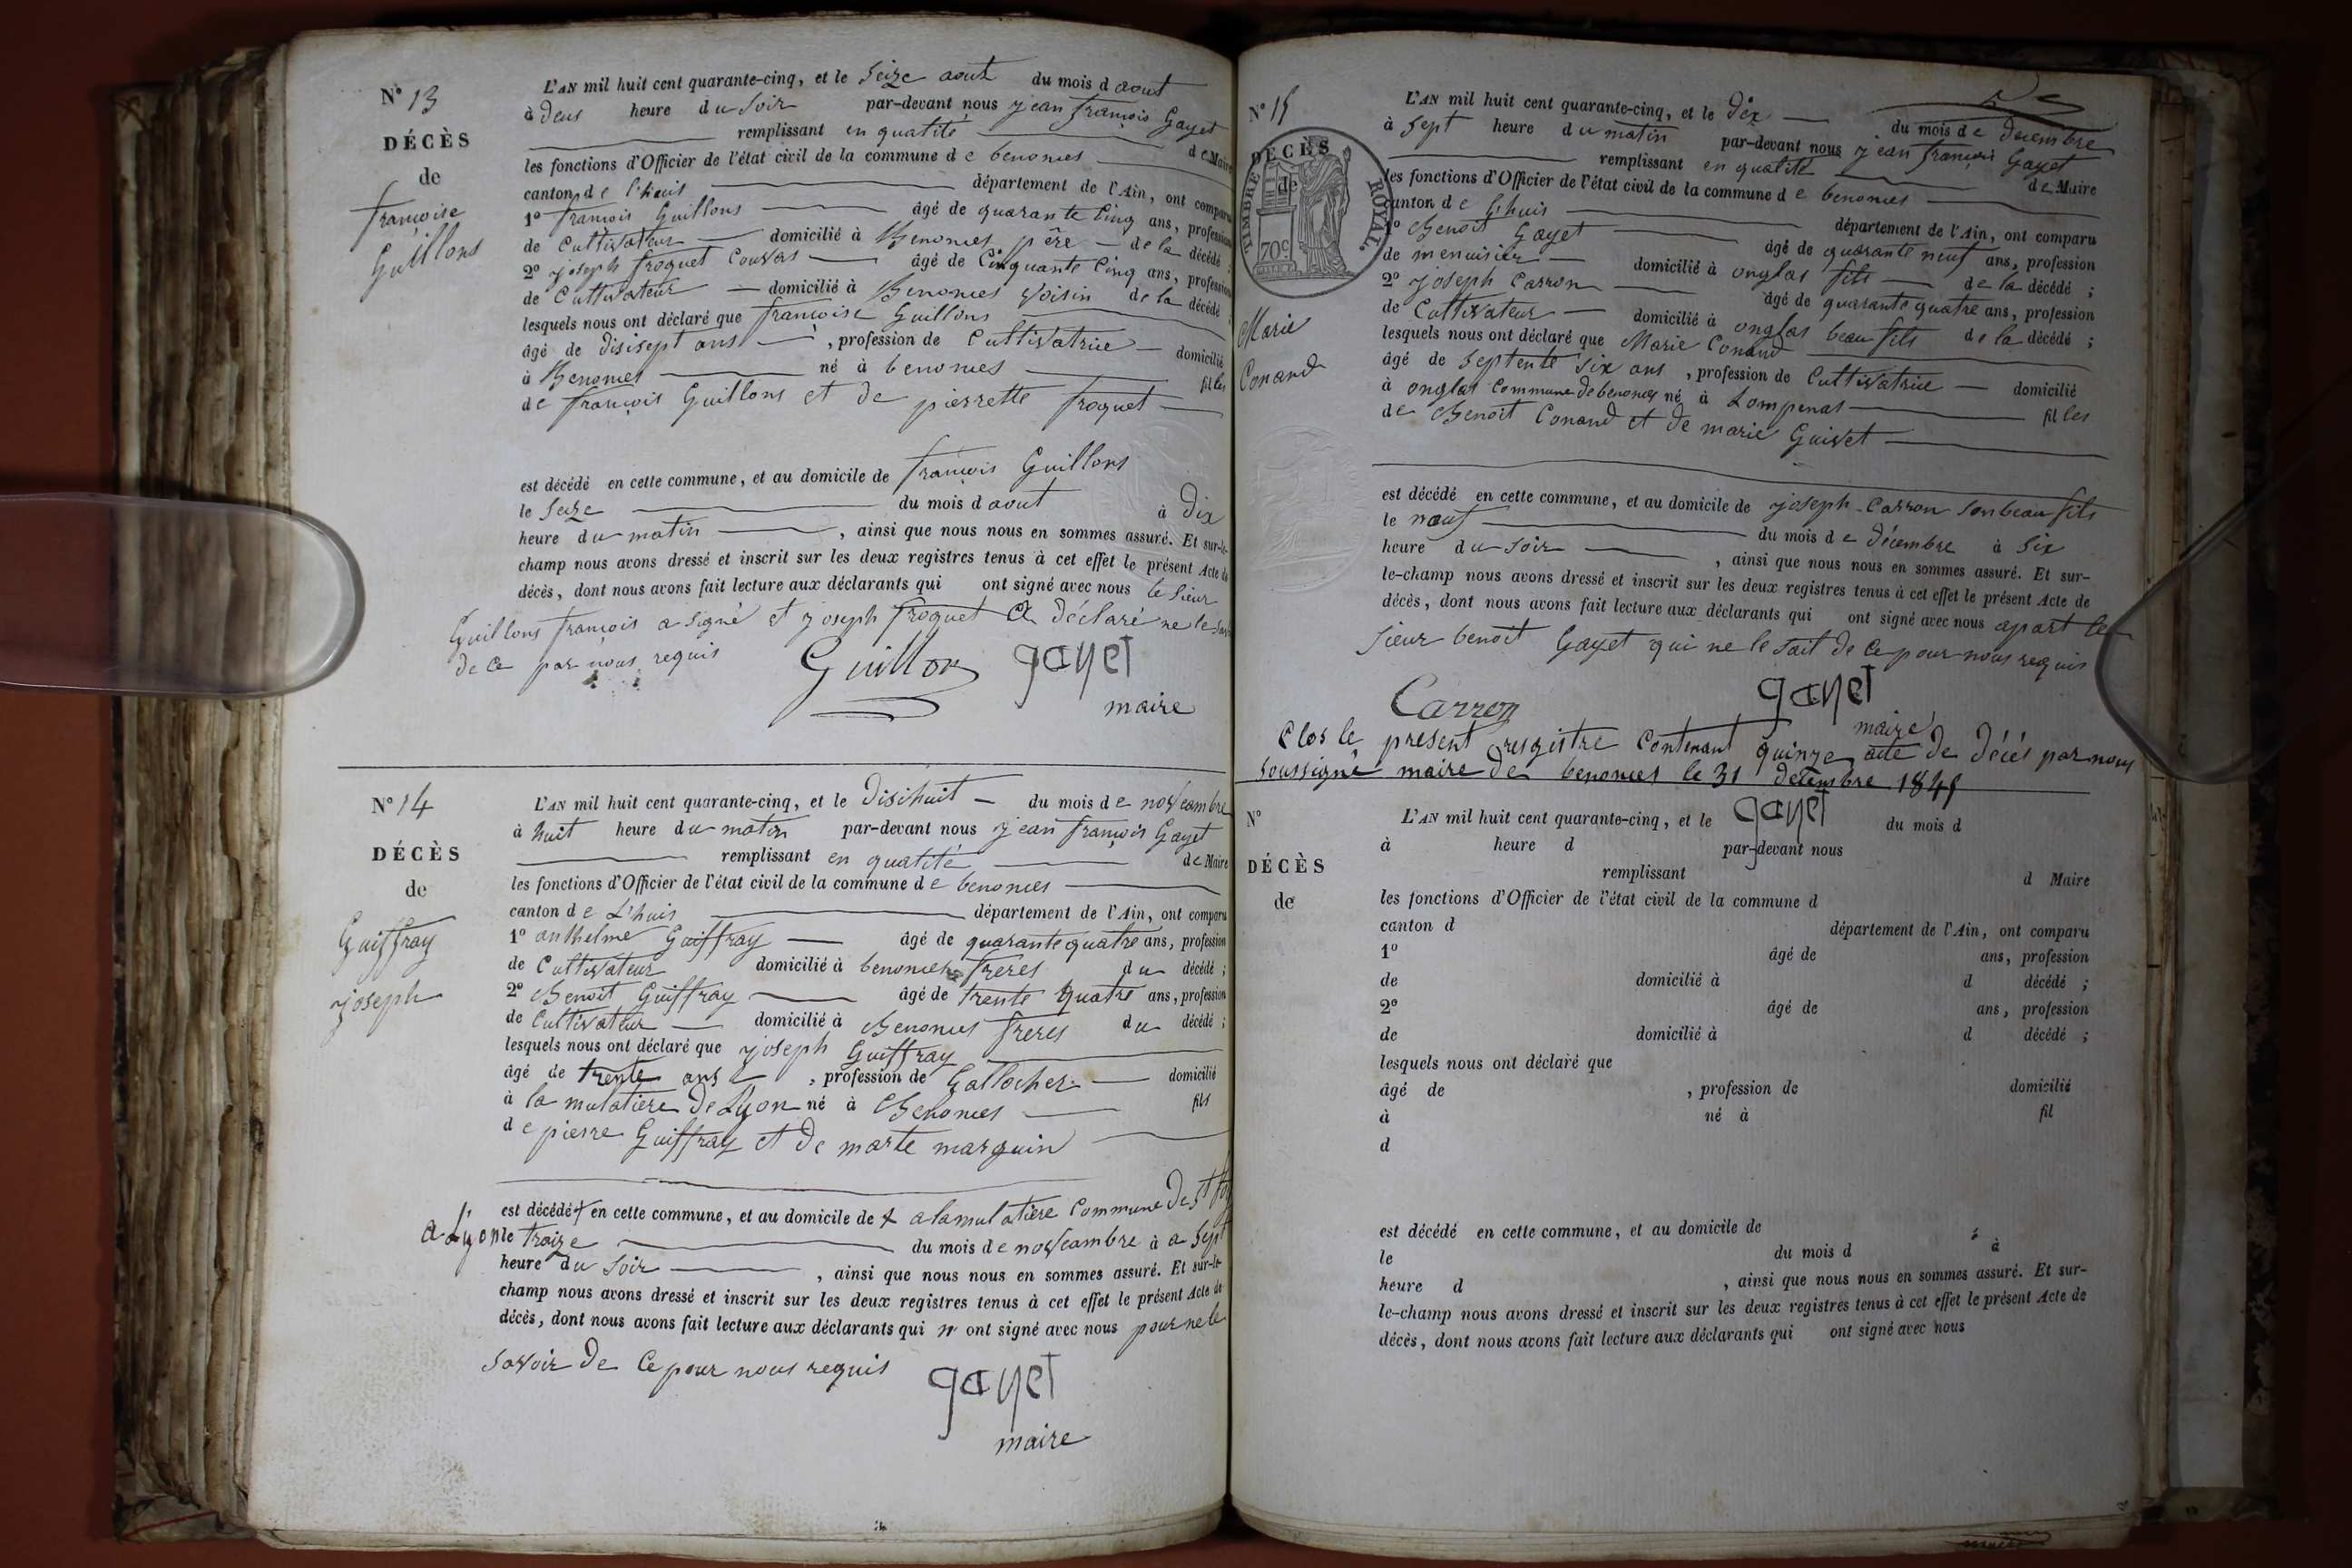 N° 13
DÉCÈS
de
françoise
Guillons
L'AN mil huit cent quarante-cinq, et le Seize aout du mois d aout
à deus heure du Soir par-devant nous jean françois Gayet
remplissant en quatité de Maire
les fonctions d'Officier de l'état civil de la commune de benonces
canton de l'huis département de l'Ain, ont comparu
1° françois Guillons âgé de quarante Cinq ans, profession
de Cultivateur domicilié à Benonces père de la décédé ;
2° joseph froquet Couvas âgé de Cinquante Cinq ans, profession
de Cultivateur domicilié à Benonces voisin de la décédé ;
lesquels nous ont déclaré que françoise Guillons
âgé de disisept ans , profession de Cultivatrice domicilié
à Benonces né à benonces filles
de françois Guillons et de pierrette froquet
est décédé en cette commune, et au domicile de françois Guillons
le Seize du mois d aout à dix
heure du matin , ainsi que nous nous en sommes assuré. Et sur-le-
champ nous avons dressé et inscrit sur les deux registres tenus à cet effet le présent Acte de
décès, dont nous avons fait lecture aux déclarants qui ont signé avec nous le Sieur
Guillons françois a Signé et joseph froquet a déclaré ne le
de ce par nous requis
Guillon gayet
maire
N° 14
DÉCÈS
de
Guiffray
joseph
L'AN mil huit cent quarante-cinq, et le disihuit du mois de noveambre
à huit heure du matin par-devant nous jean françois Gayet
remplissant en quatité de Maire
les fonctions d'Officier de l'état civil de la commune de benonces
canton de L'huis département de l'Ain, ont comparu
1° anthelme Guiffray âgé de quarante quatre ans, profession
de Cultivateur domicilié à benonces freres du décédé ;
2° Benoit Guiffray âgé de trente quatre ans, profession
de Cultivateur domicilié à Benonces freres du décédé ;
lesquels nous ont déclaré que joseph Guiffray
âgé de trente ans , profession de Gallocher domicilié
à la mulatiere de Lyon né à Benonces fils
de pierre Guiffray et de marte marquin
est décédé en cette commune, et au domicile de a lamulatière Commune de St foy
a Lyon le traize du mois de noveambre à a Sept
heure du Soir , ainsi que nous nous en sommes assuré. Et sur-le-
champ nous avons dressé et inscrit sur les deux registres tenus à cet effet le présent Acte de
décès, dont nous avons fait lecture aux déclarants qui n ont signé avec nous pour ne le
Savoir de Ce pour nous requis
gayet
maire
N° 15
DÉCÈS
de
TIMBRE ROYAL.
70c
Marie
Conand
L'AN mil huit cent quarante-cinq, et le dix du mois de decembre
à Sept heure du matin par-devant nous jean françois Gayet
remplissant en quatité de Maire
les fonctions d'Officier de l'état civil de la commune de benonces
canton de l'huis département de l'Ain, ont comparu
1° Benoit Gayet âgé de quarante neuf ans, profession
de menuisier domicilié à onglas fils de la décédé ;
2° joseph Carron âgé de quarante quatre ans, profession
de Cultivateur domicilié à onglas beau fils de la décédé ;
lesquels nous ont déclaré que Marie Conand
âgé de Septente Six ans , profession de Cultivatrice domicilié
à onglas Commune de benonces né à Lompenas filles
de Benoit Conand et de marie Guivet
est décédé en cette commune, et au domicile de joseph Carron Son beau fils
le neuf du mois de décembre à Six
heure du Soir , ainsi que nous nous en sommes assuré. Et sur-
le-champ nous avons dressé et inscrit sur les deux registres tenus à cet effet le présent Acte de
décès, dont nous avons fait lecture aux déclarants qui ont signé avec nous apart le
Sieur benoit Gayet qui ne le Sait de Ce pour nous requis
Carron gayet
maire
Clos le present resgistre Contenant quinze acte de décés par nous
soussigné maire de benonces le 31 decembre 1845
gayet
N°
DÉCÈS
de
L'AN mil huit cent quarante-cinq, et le du mois d
à heure d par-devant nous
remplissant d Maire
les fonctions d'Officier de l'état civil de la commune d
canton d département de l'Ain, ont comparu
1° âgé de ans, profession
de domicilié à d décédé ;
2° âgé de ans, profession
de domicilié à d décédé ;
lesquels nous ont déclaré que
âgé de , profession de domicilié
à né à fil
d
est décédé en cette commune, et au domicile de
le du mois d à
heure d , ainsi que nous nous en sommes assuré. Et sur-
le-champ nous avons dressé et inscrit sur les deux registres tenus à cet effet le présent Acte de
décès, dont nous avons fait lecture aux déclarants qui ont signé avec nous